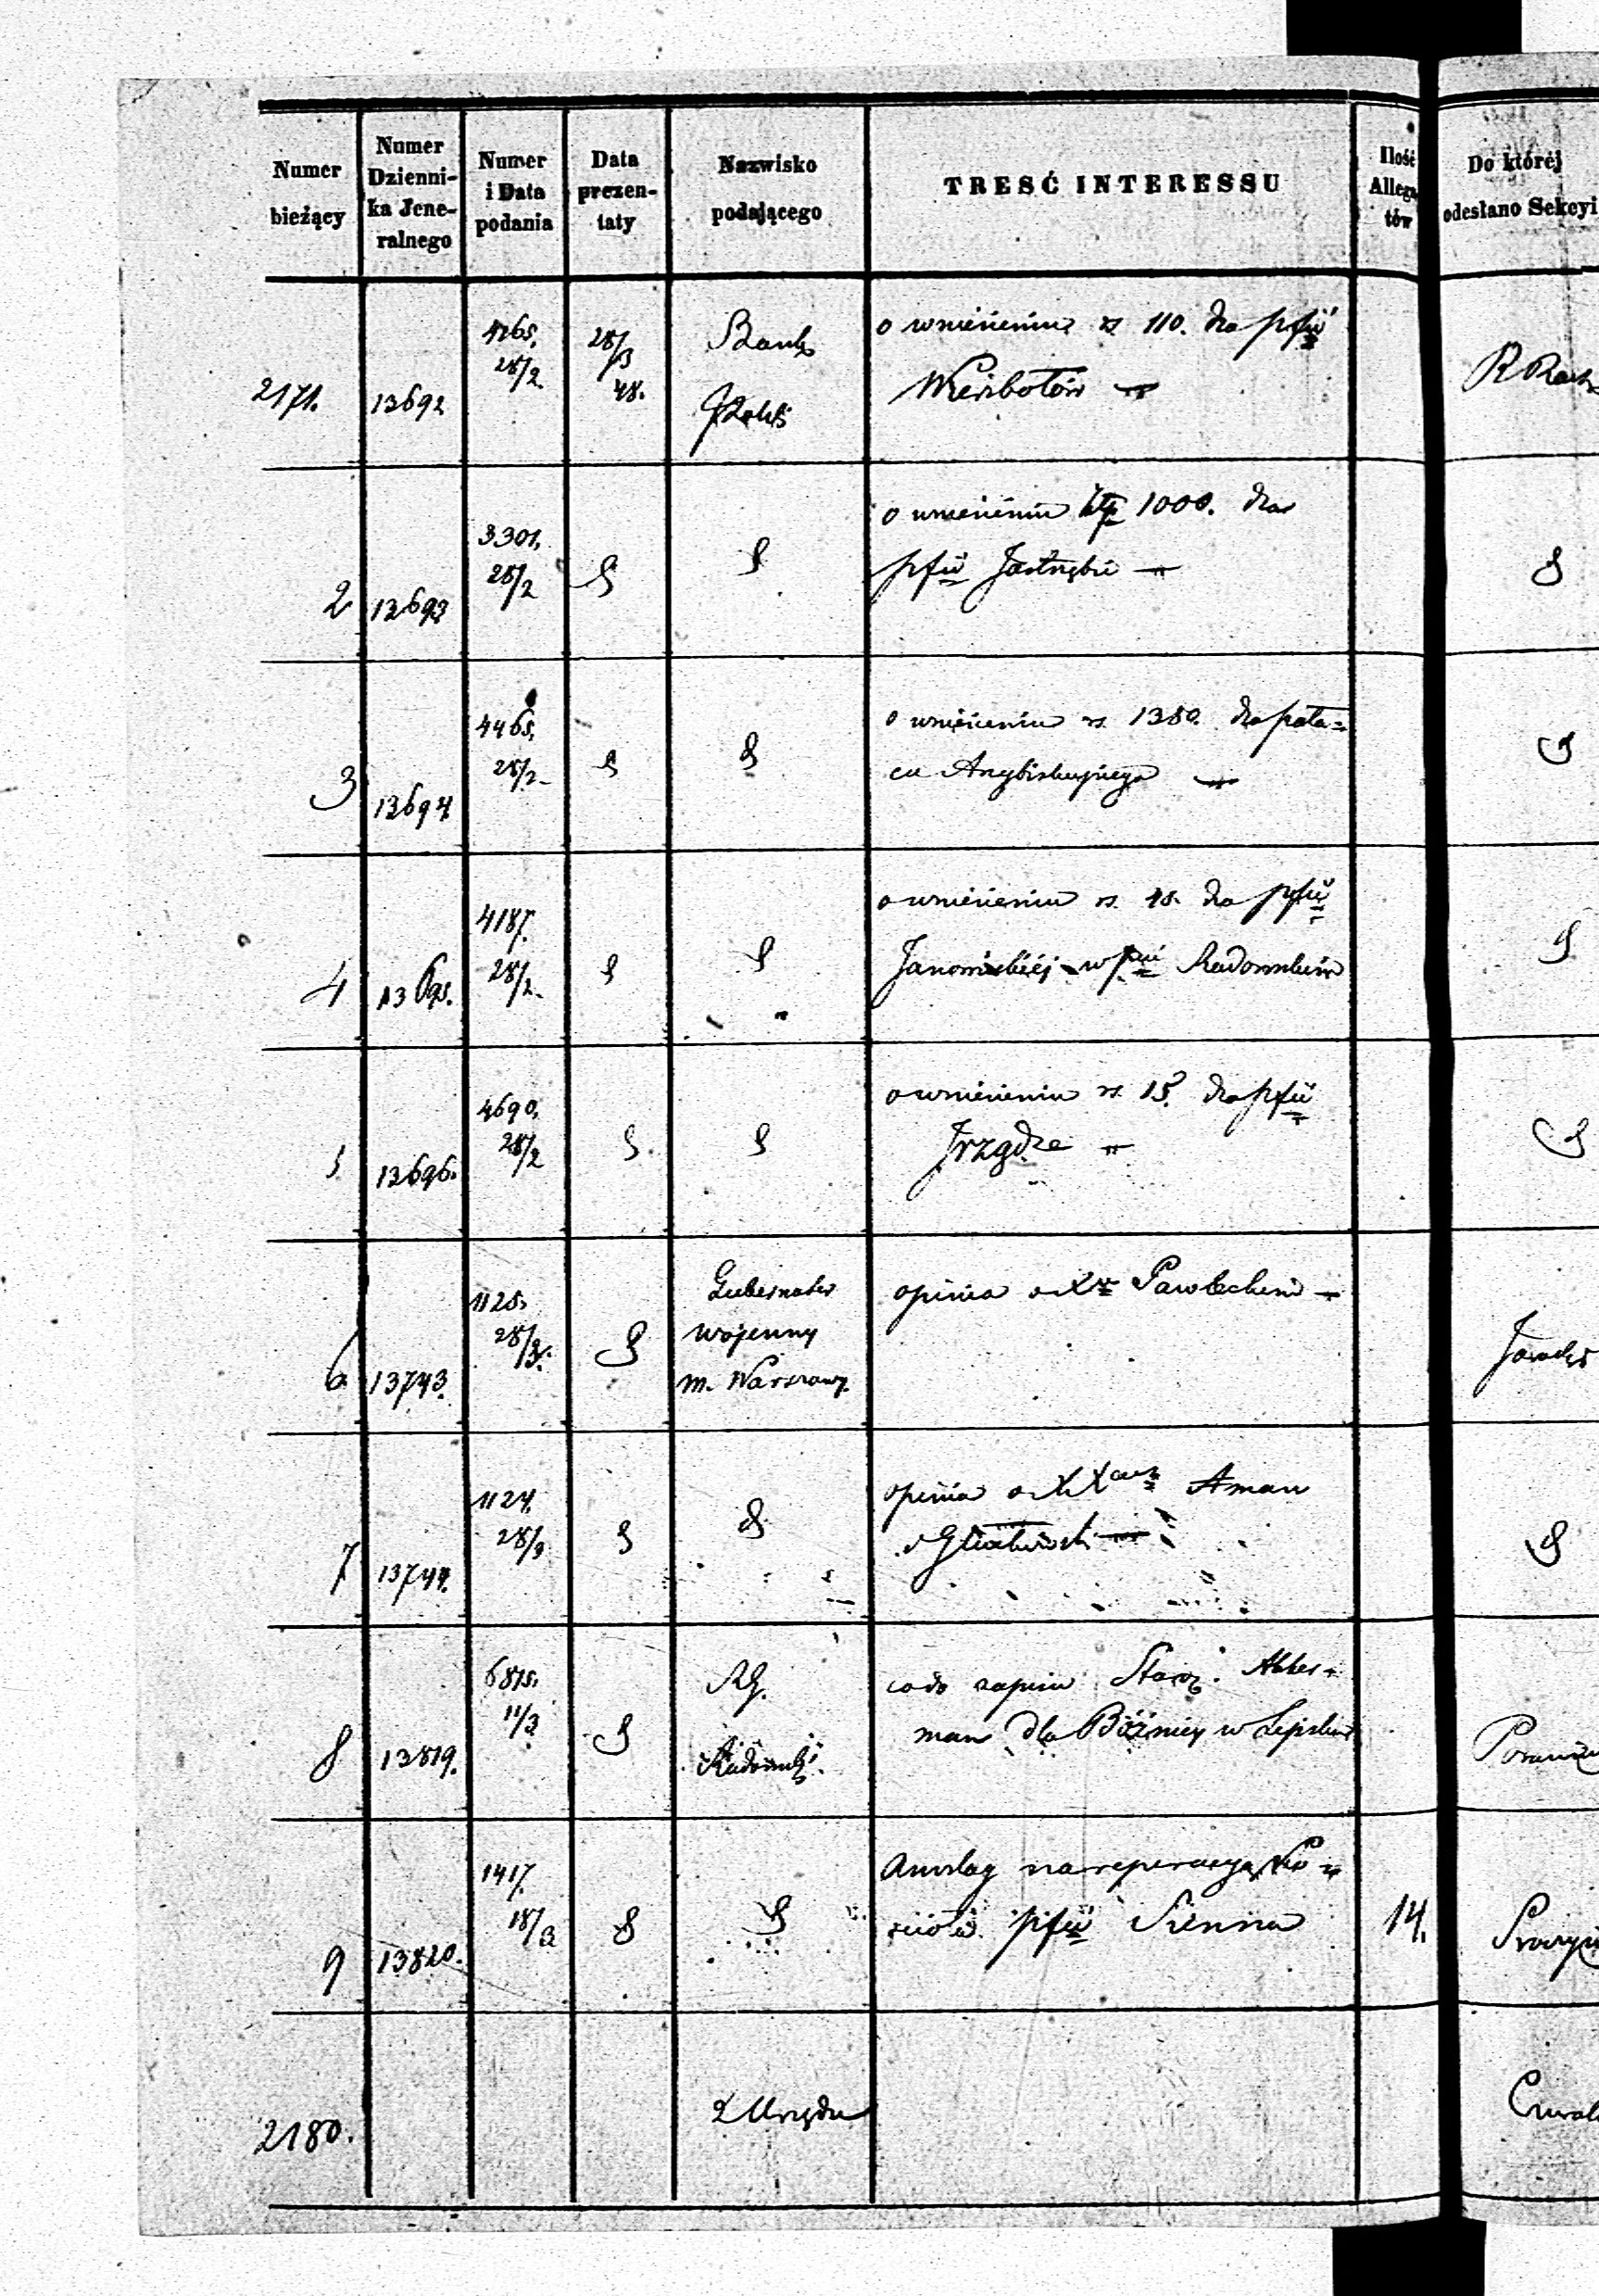 Numer bieżący
Numer Dzienni-
ka Jene-
ralnego
Numer i Data podania
Data prezen-
taty
Nazwisko podającego
TREŚĆ INTERESSU
Ilość Allega
tów
Do któréj odesłano Sekcyi
2171. 13692 4265. 28/2 28/3 48. Bank Polski
o wniesieniu rs 110. dla pfii
Wierzbołów
2 13693 3301. 28/2
o wniesieniu złp 1000. dla
pfii Jastrzębie
3 13694 4465. 28/2
o wniesieniu rs. 1380. dla pała=
cu Arcybiskupiego
4 13695. 4187. 28/2
o wniesieniu rs. 45. dla pfii
w Radomskim
5 13696. 4690. 28/2
o wniesieniu rs. 15. dla pfii
Jrządze
6 13743. 1125. 28/3. Gubernator
wojenny
m. Warszawy.
opinia o Xu
7 13744. 1124. 28/3
opinia o XX Aman
8 13819. 6875. 11/3 RG.
Radomski.
co do zapisu Staroz. Abber-
man dla Bóżnicy w Lipsku
9 13820. 1417. 18/3
Anszlag na reperacyą Ko=
ścioła pfii Sienna 14.
2180. Z Urzędu